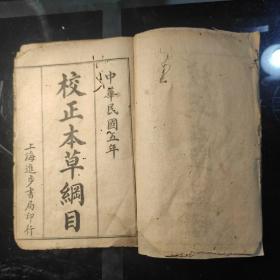 中華民國五年
校正本草綱目
上海進步書局印行